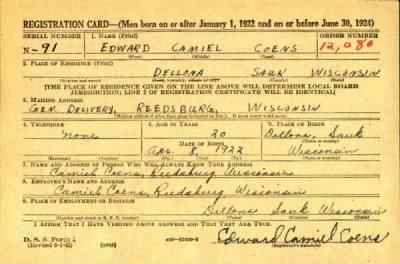 REGISTRATION CARD—(Men born on or after January 1, 1922 and on or before June 30, 1924)
SERIAL NUMBER 1. NAME (Print) ORDER NUMBER
N-91 EDWARD CAMIEL COENS 12,080
(First) (Middle) (Last)
2. PLACE OF RESIDENCE (Print)
DELLONA SAUK WISCONSIN
[THE PLACE OF RESIDENCE GIVEN ON THE LINE ABOVE WILL DETERMINE LOCAL BOARD
JURISDICTION; LINE 2 OF REGISTRATION CERTIFICATE WILL BE IDENTICAL]
3. MAILING ADDRESS
GEN. DELIVERY, REEDSBURG, WISCONSIN
[Mailing address if other than place indicated on line 2. If same insert word same]
4. TELEPHONE 5. AGE IN YEARS 6. PLACE OF BIRTH
none 20 Dellona, Sauk
DATE OF BIRTH
Apr. 8, 1922 Wisconsin
7. NAME AND ADDRESS OF PERSON WHO WILL ALWAYS KNOW YOUR ADDRESS
Camiel Coens, Reedsburg Wisconsin
8. EMPLOYER'S NAME AND ADDRESS
Camiel Coens, Reedsburg, Wisconsin
9. PLACE OF EMPLOYMENT OR BUSINESS
Dellona Sauk Wisconsin
I AFFIRM THAT I HAVE VERIFIED ABOVE ANSWERS AND THAT THEY ARE TRUE.
D. S. S. Form 1
(over)
Edward Camiel Coens